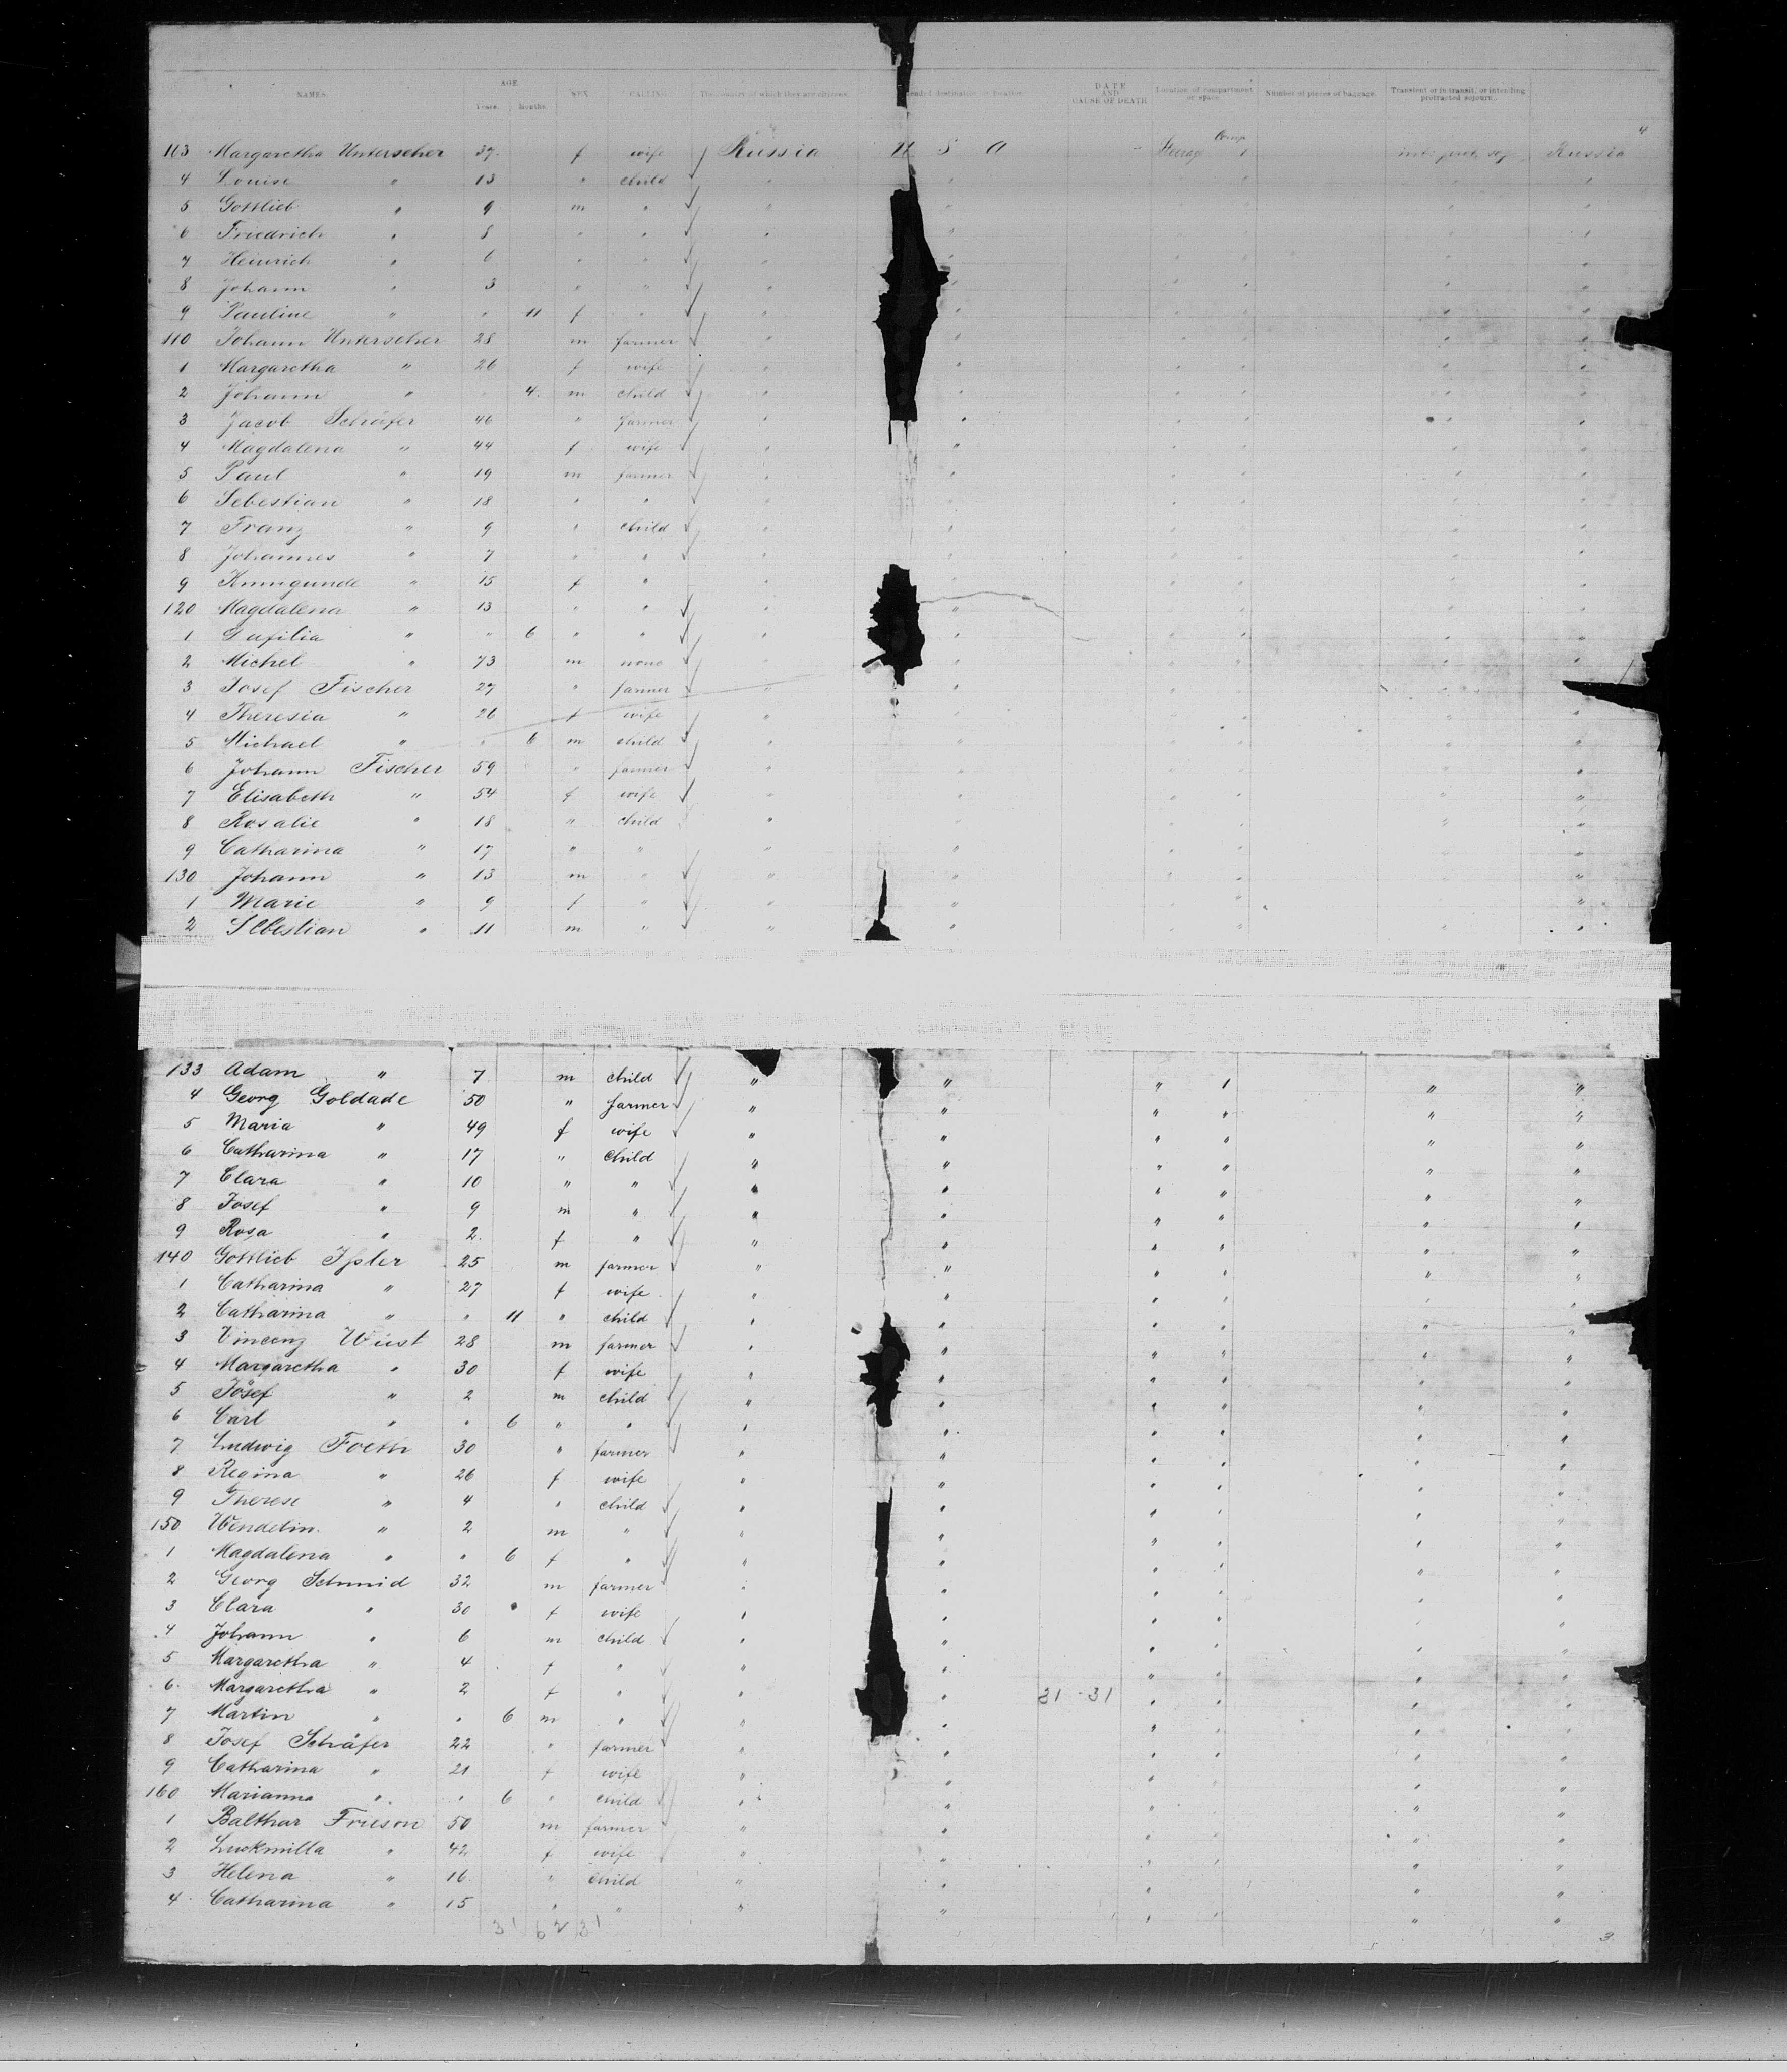 NAMES. AGE Years. Months. SEX CALLING The country of which they are citizens. Intended destination or location DATE AND CAUSE OF DEATH Location of compartment or space. Number of pieces of baggage. Transient or in transit, or intending protracted sojourn.
4
103 Margaretha Unterseher 37 f wife Russia U S A Steerage Comp 1 Russia
4 Louise " 13 " child " " " " "
5 Gottlieb " 9 m " " " " " "
6 Friedrich " 8 " " " " " " "
7 Heinrich " 6 " " " " " " "
8 Johann " 3 " " " " " " "
9 Pauline " " 11 f " " " " " "
110 Johann Unterseher 28 m farmer " " " " "
1 Margaretha " 26 f wife " " " " "
2 Johann " " 4 m child " " " " "
3 Jacob Schäfer 46 " farmer " " " " "
4 Magdalena " 44 f wife " " " " "
5 Paul " 19 m farmer " " " " "
6 Sebestian " 18 " " " " " " "
7 Franz " 9 " child " " " " "
8 Johannes " 7 " " " " " " "
9 Kunigunde " 15 f " " " " " "
120 Magdalena " 13 " " " " " " "
1 " " 6 " " " " " " "
2 Michel " 73 m none " " " " "
3 Josef Fischer 27 " farmer " " " " "
4 Theresia " 26 f wife " " " " "
5 Michael " " 6 m child " " " " "
6 Johann Fischer 59 " farmer " " " " "
7 Elisabeth " 54 f wife " " " " "
8 Rosalie " 18 " child " " " " "
9 Catharina " 17 " " " " " " "
130 Johann " 13 m " " " " " "
1 Marie " 9 f " " " " " "
2 Sebestian " 11 m " " " " " "
133 Adam " 7 m child " " " 1 " "
4 Georg Goldade 50 " farmer " " " " " "
5 Maria " 49 f wife " " " " " "
6 Catharina " 17 " child " " " " " "
7 Clara " 10 " " " " " " " "
8 Josef " 9 m " " " " " " "
9 Rosa " 2 f " " " " " " "
140 Gottlieb Ißler 25 m farmer " " " " " "
1 Catharina " 27 f wife " " " " " "
2 Catharina " " 11 " child " " " " " "
3 Vincenz Wüst 28 m farmer " " " " " "
4 Margaretha " 30 f wife " " " " " "
5 Josef " 2 m child " " " " " "
6 Carl " " 6 " " " " " " " "
7 Ludwig Foeth 30 " farmer " " " " " "
8 Regina " 26 f wife " " " " " "
9 Therese " 4 " child " " " " " "
150 Wendelin " 2 m " " " " " " "
1 Magdalena " " 6 f " " " " " " "
2 Georg Schmid 32 m farmer " " " " " "
3 Clara " 30 f wife " " " " " "
4 Johann " 6 m child " " " " " "
5 Margaretha " 4 f " " " " " " "
6 Margaretha " 2 f " " " 31-31 " " " "
7 Martin " " 6 m " " " " " " "
8 Josef Schäfer 22 " farmer " " " " " "
9 Catharina " 21 f wife " " " " " "
160 Marianna " " 6 " child " " " " " "
1 Balthar Frieson 50 m farmer " " " " " "
2 Luckmilla " 42 f wife " " " " " "
3 Helena " 16 " child " " " " " "
4 Catharina " 15 " " " " " " " "
31 62 31
3